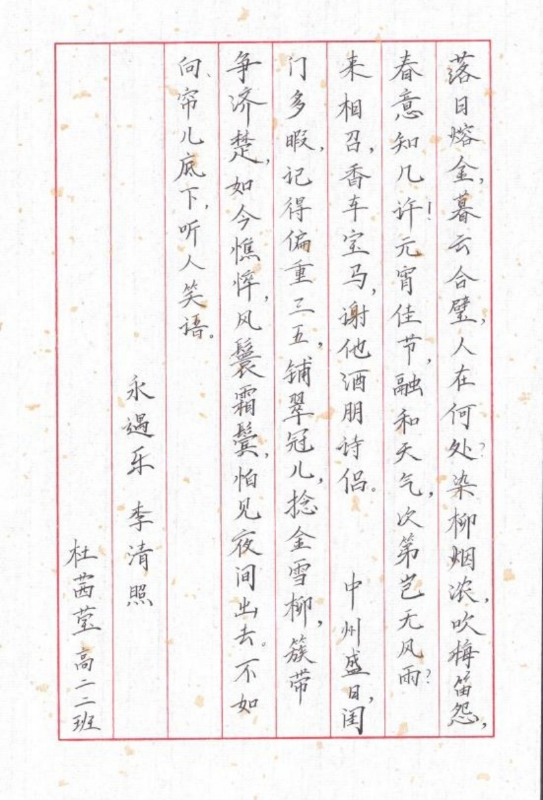 落日熔金，暮云合璧，人在何处？染柳烟浓，吹梅笛怨，
春意知几许！元宵佳节，融和天气，次第岂无风雨？
来相召，香车宝马，谢他酒朋诗侣。 中州盛日，闺
门多暇，记得偏重三五，铺翠冠儿，捻金雪柳，簇带
争济楚，如今憔悴，风鬟霜鬓，怕见夜间出去。不如
向、帘儿底下，听人笑语。
永遇乐 李清照
杜茜莹 高二二班